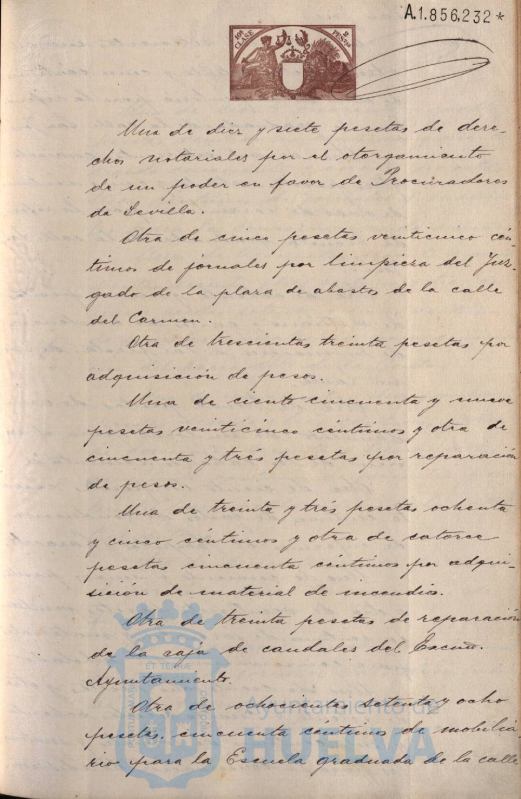 A.1.856,232*
10ª CLASE
2 PESETAS
Una de diez y siete pesetas de dere-
chos notariales por el otorgamiento
de un poder en favor de Procuradores
de Sevilla.
Otra de cinco pesetas veinticinco cén-
timos de jornales por limpieza del Juz-
gado de la plaza de abastos de la calle
del Carmen.
Otra de trescientas treinta pesetas por
adquisición de pesos.
Una de ciento cincuenta y nueve
pesetas veinticinco céntimos y otra de
cincuenta y trés pesetas por reparación
de pesos.
Una de treinta y trés pesetas ochenta
y cinco céntimos y otra de catorce
pesetas cincuenta céntimos por adqui-
sición de material de incendios.
Otra de treinta pesetas de reparación
de la caja de caudales del Excmo.
Ayuntamiento.
Otra de ochocientas setenta y ocho
pesetas cincuenta céntimos de mobilia-
rio para la Escuela graduada de la calle
Ayuntamiento de
HUELVA